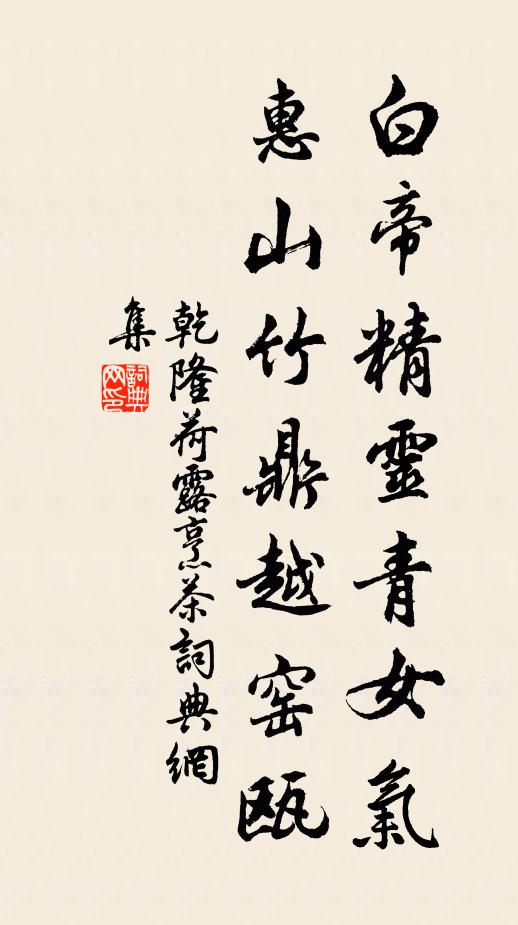 白帝精靈青女氣
惠山竹鼎越窑甌
乾隆荷露烹茶詞典網
集
詞典
网印